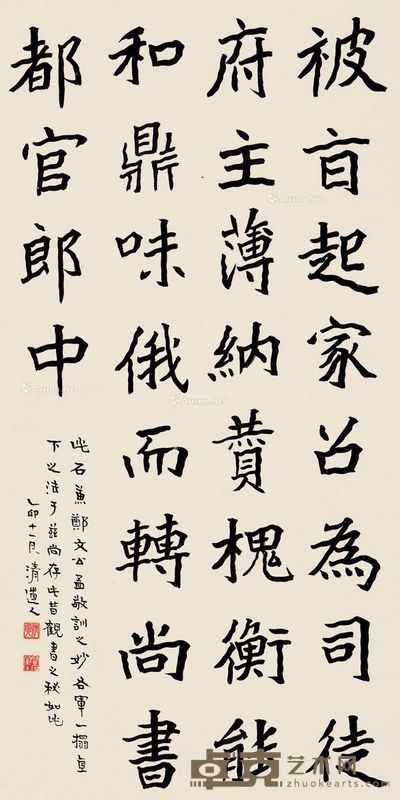 被旨起家召為司徒
府主薄納賛槐衡能
和鼎味俄而轉尚書
都官郎中
此石兼鄭文公孟敬訓之妙右軍一搨直
下之法于茲尚存此昔觀書之秘如此
乙卯十一月清道人
Artron.Net
卓克艺术网
zhuokearts.com